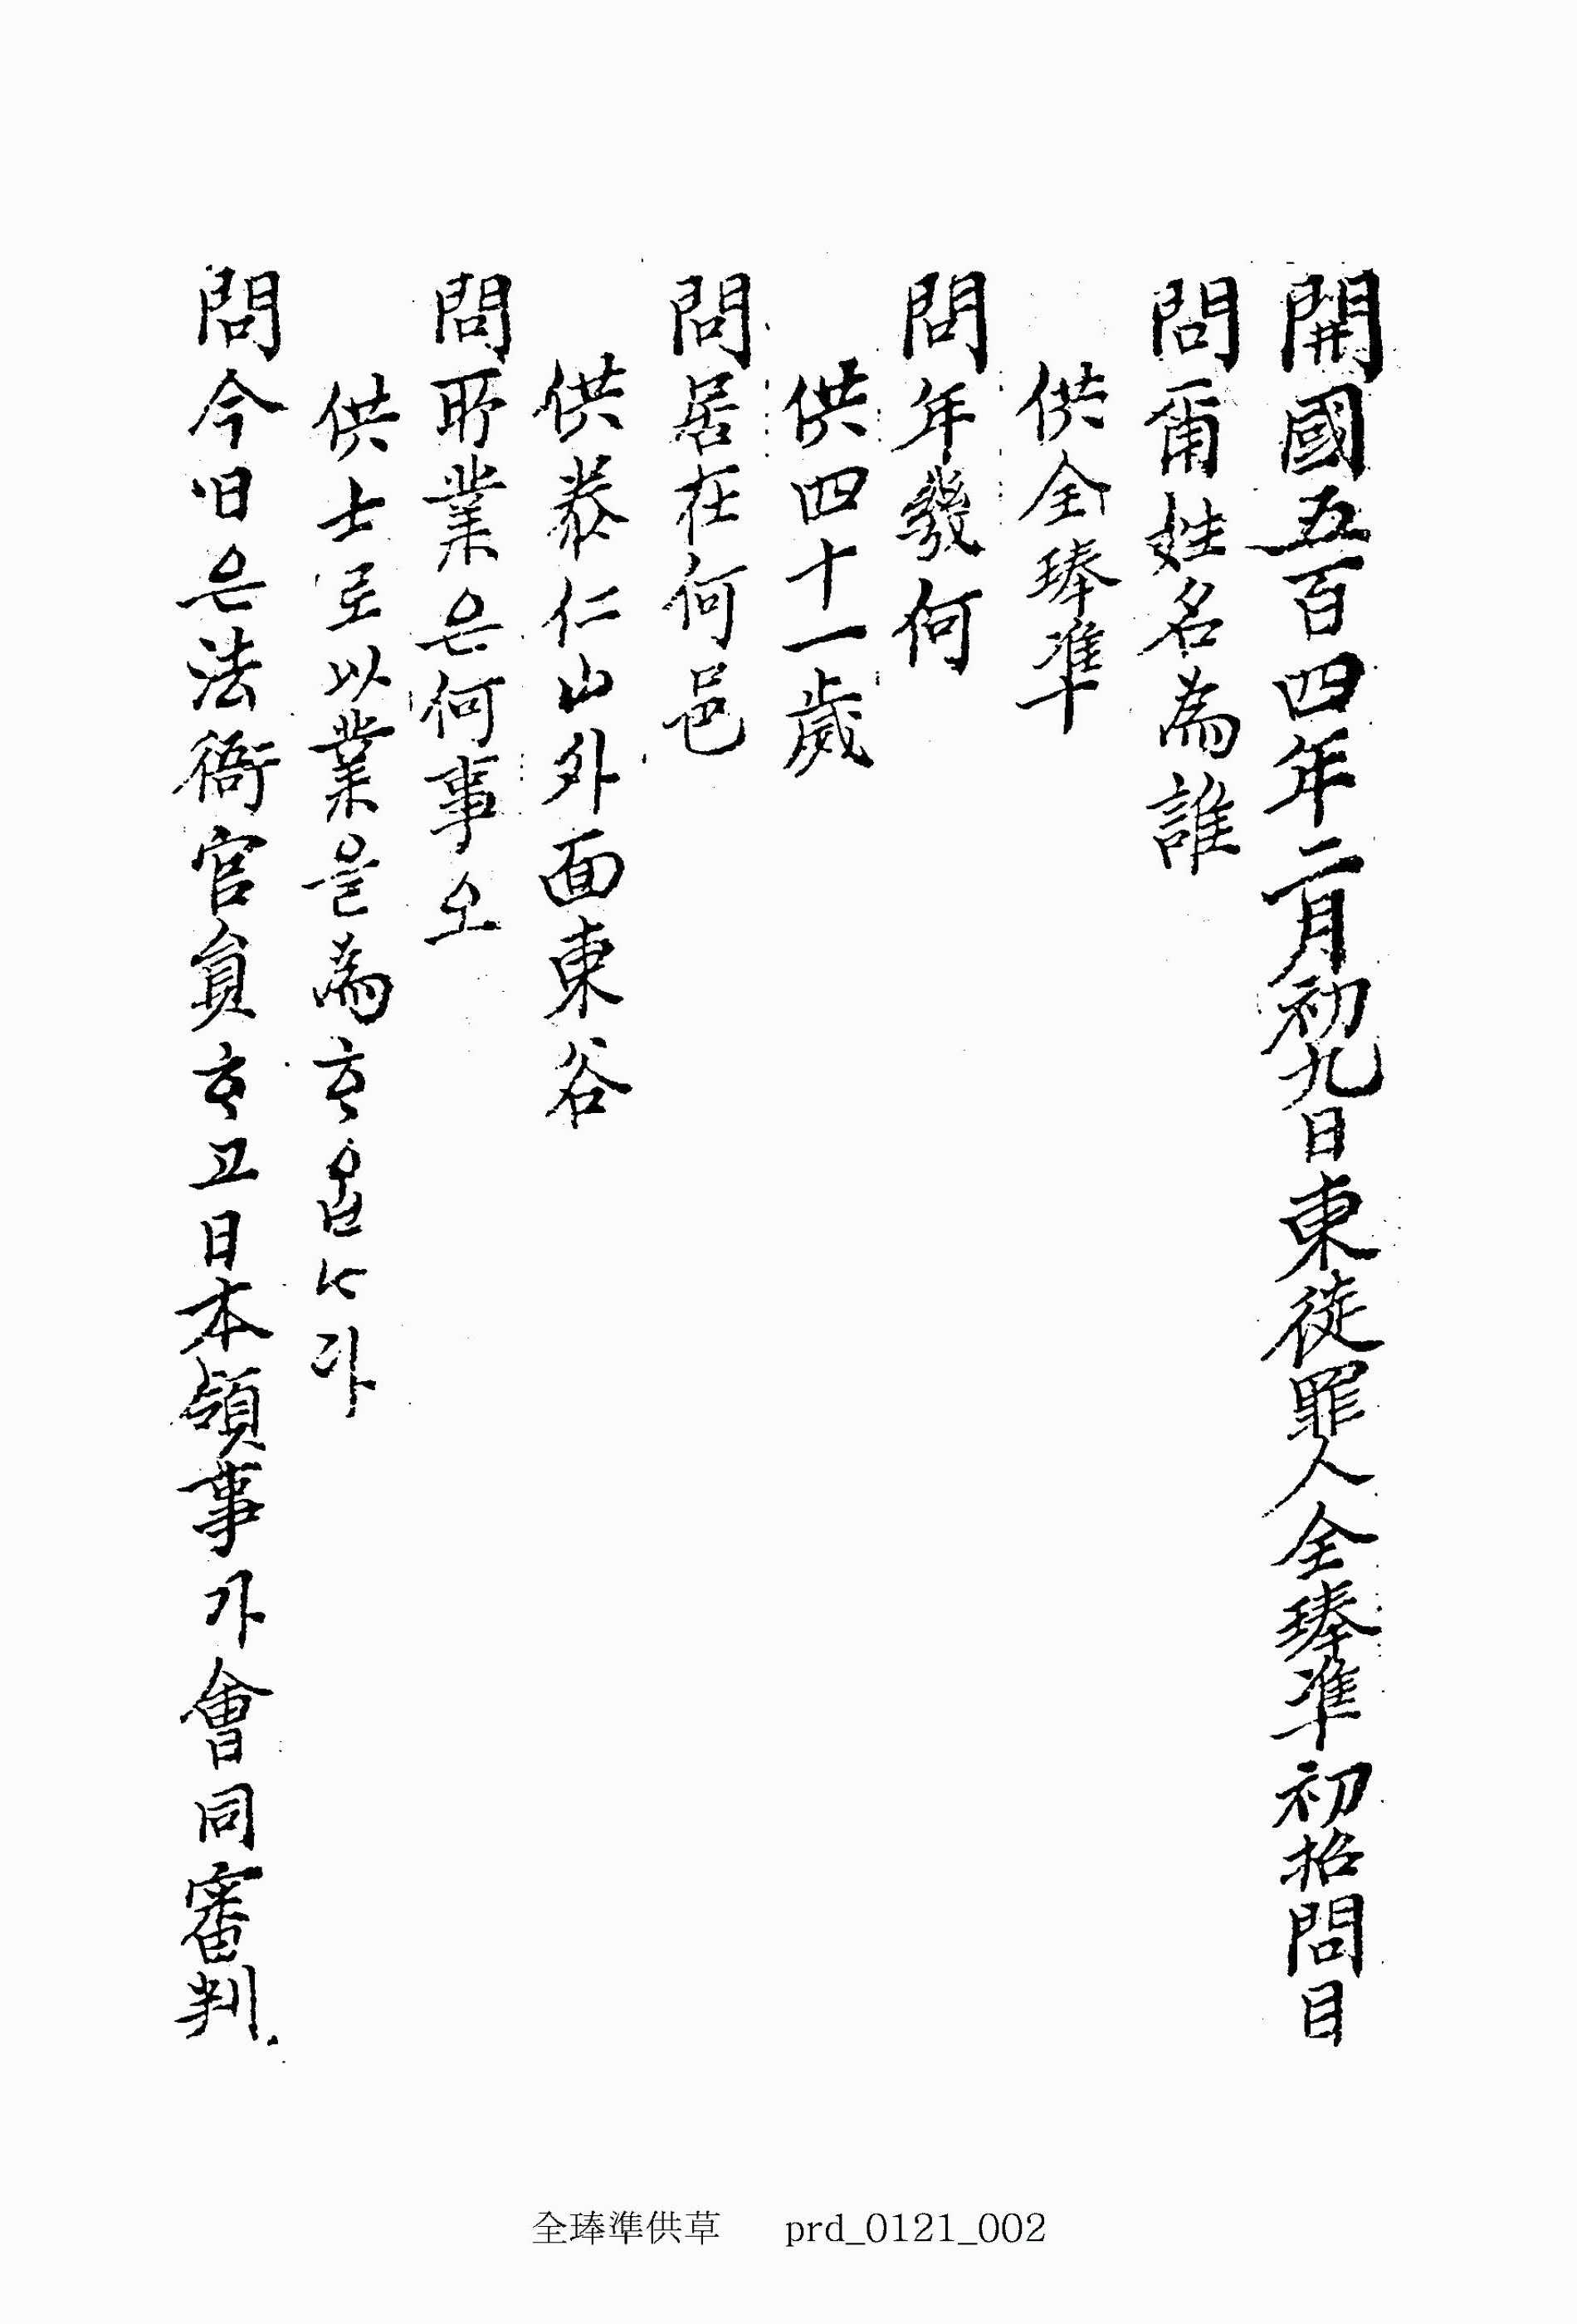 開國五百四年二月初九日東徒罪人全琫準初招問目
問爾姓名為誰
供全琫準
問年幾何
供四十一歲
問居在何邑
供泰仁山外面東谷
問所業은何事오
供士로以業을為ᄒᆞ옵ᄂᆡ다
問今日은法衙官員ᄒᆞ고日本領事가會同審判
全琫準供草 prd_0121_002